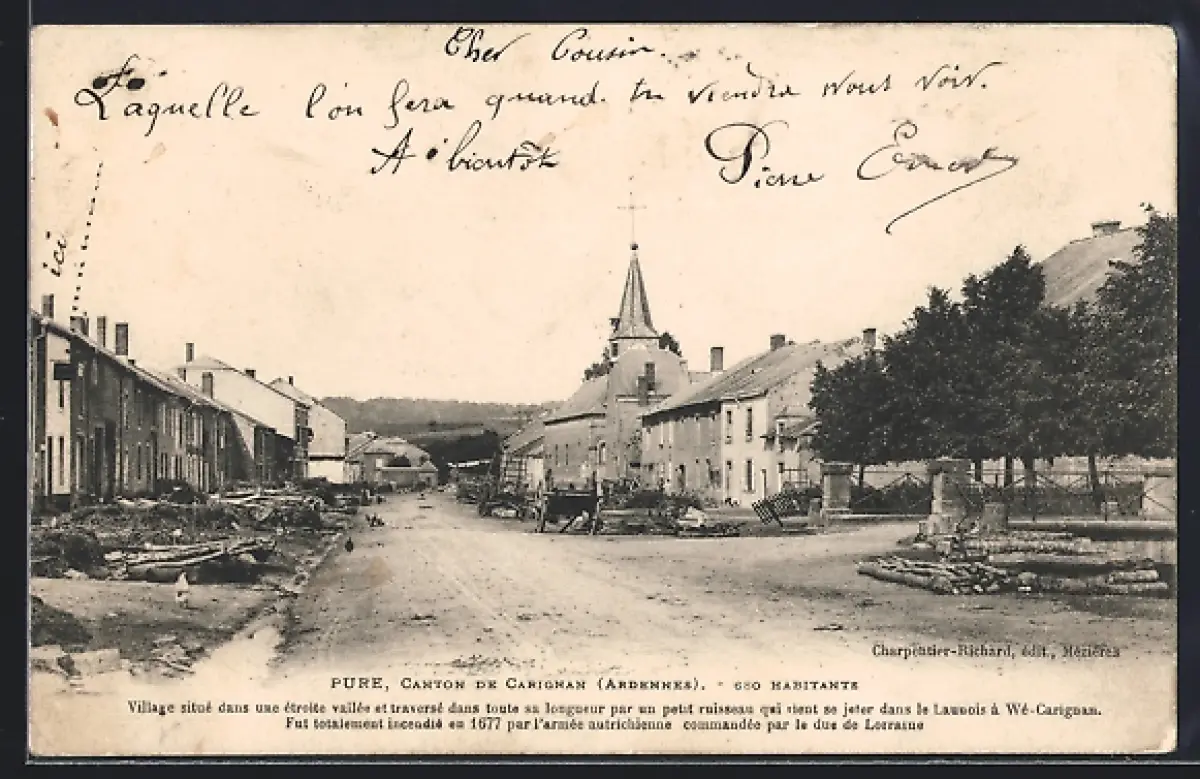 Cher Cousin.
Laquelle l'on fera quand. tu viendra nous voir.
A bientôt
Pierre Ernest
ici
Charpentier-Richard, édit., Mézières
PURE, CANTON DE CARIGNAN (ARDENNES). - 680 HABITANTS
Village situé dans une étroite vallée et traversé dans toute sa longueur par un petit ruisseau qui vient se jeter dans le Launois à Wé-Carignan.
Fut totalement incendié en 1677 par l'armée autrichienne commandée par le duc de Lorraine